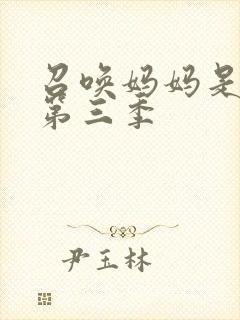 召唤妈妈是
第三季
尹玉林